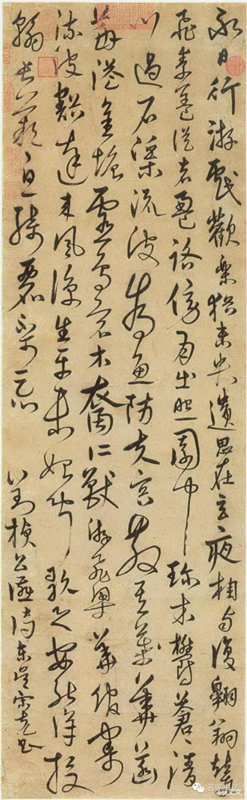 永日行遊戲歡樂猶未央遺思在玄夜相與復翱翔輦車
飛素蓋從者盈路傍月出照園中珍木鬱蒼蒼清
川過石渠流波為魚防芙蓉散其華菡
萏溢金塘靈鳥宿水裔仁獸游飛梁華館寄
流波豁達來風涼生平未始聞歌之安能詳投
翰長歎息綺麗不可忘
右劉楨公讌詩東吳宋克書